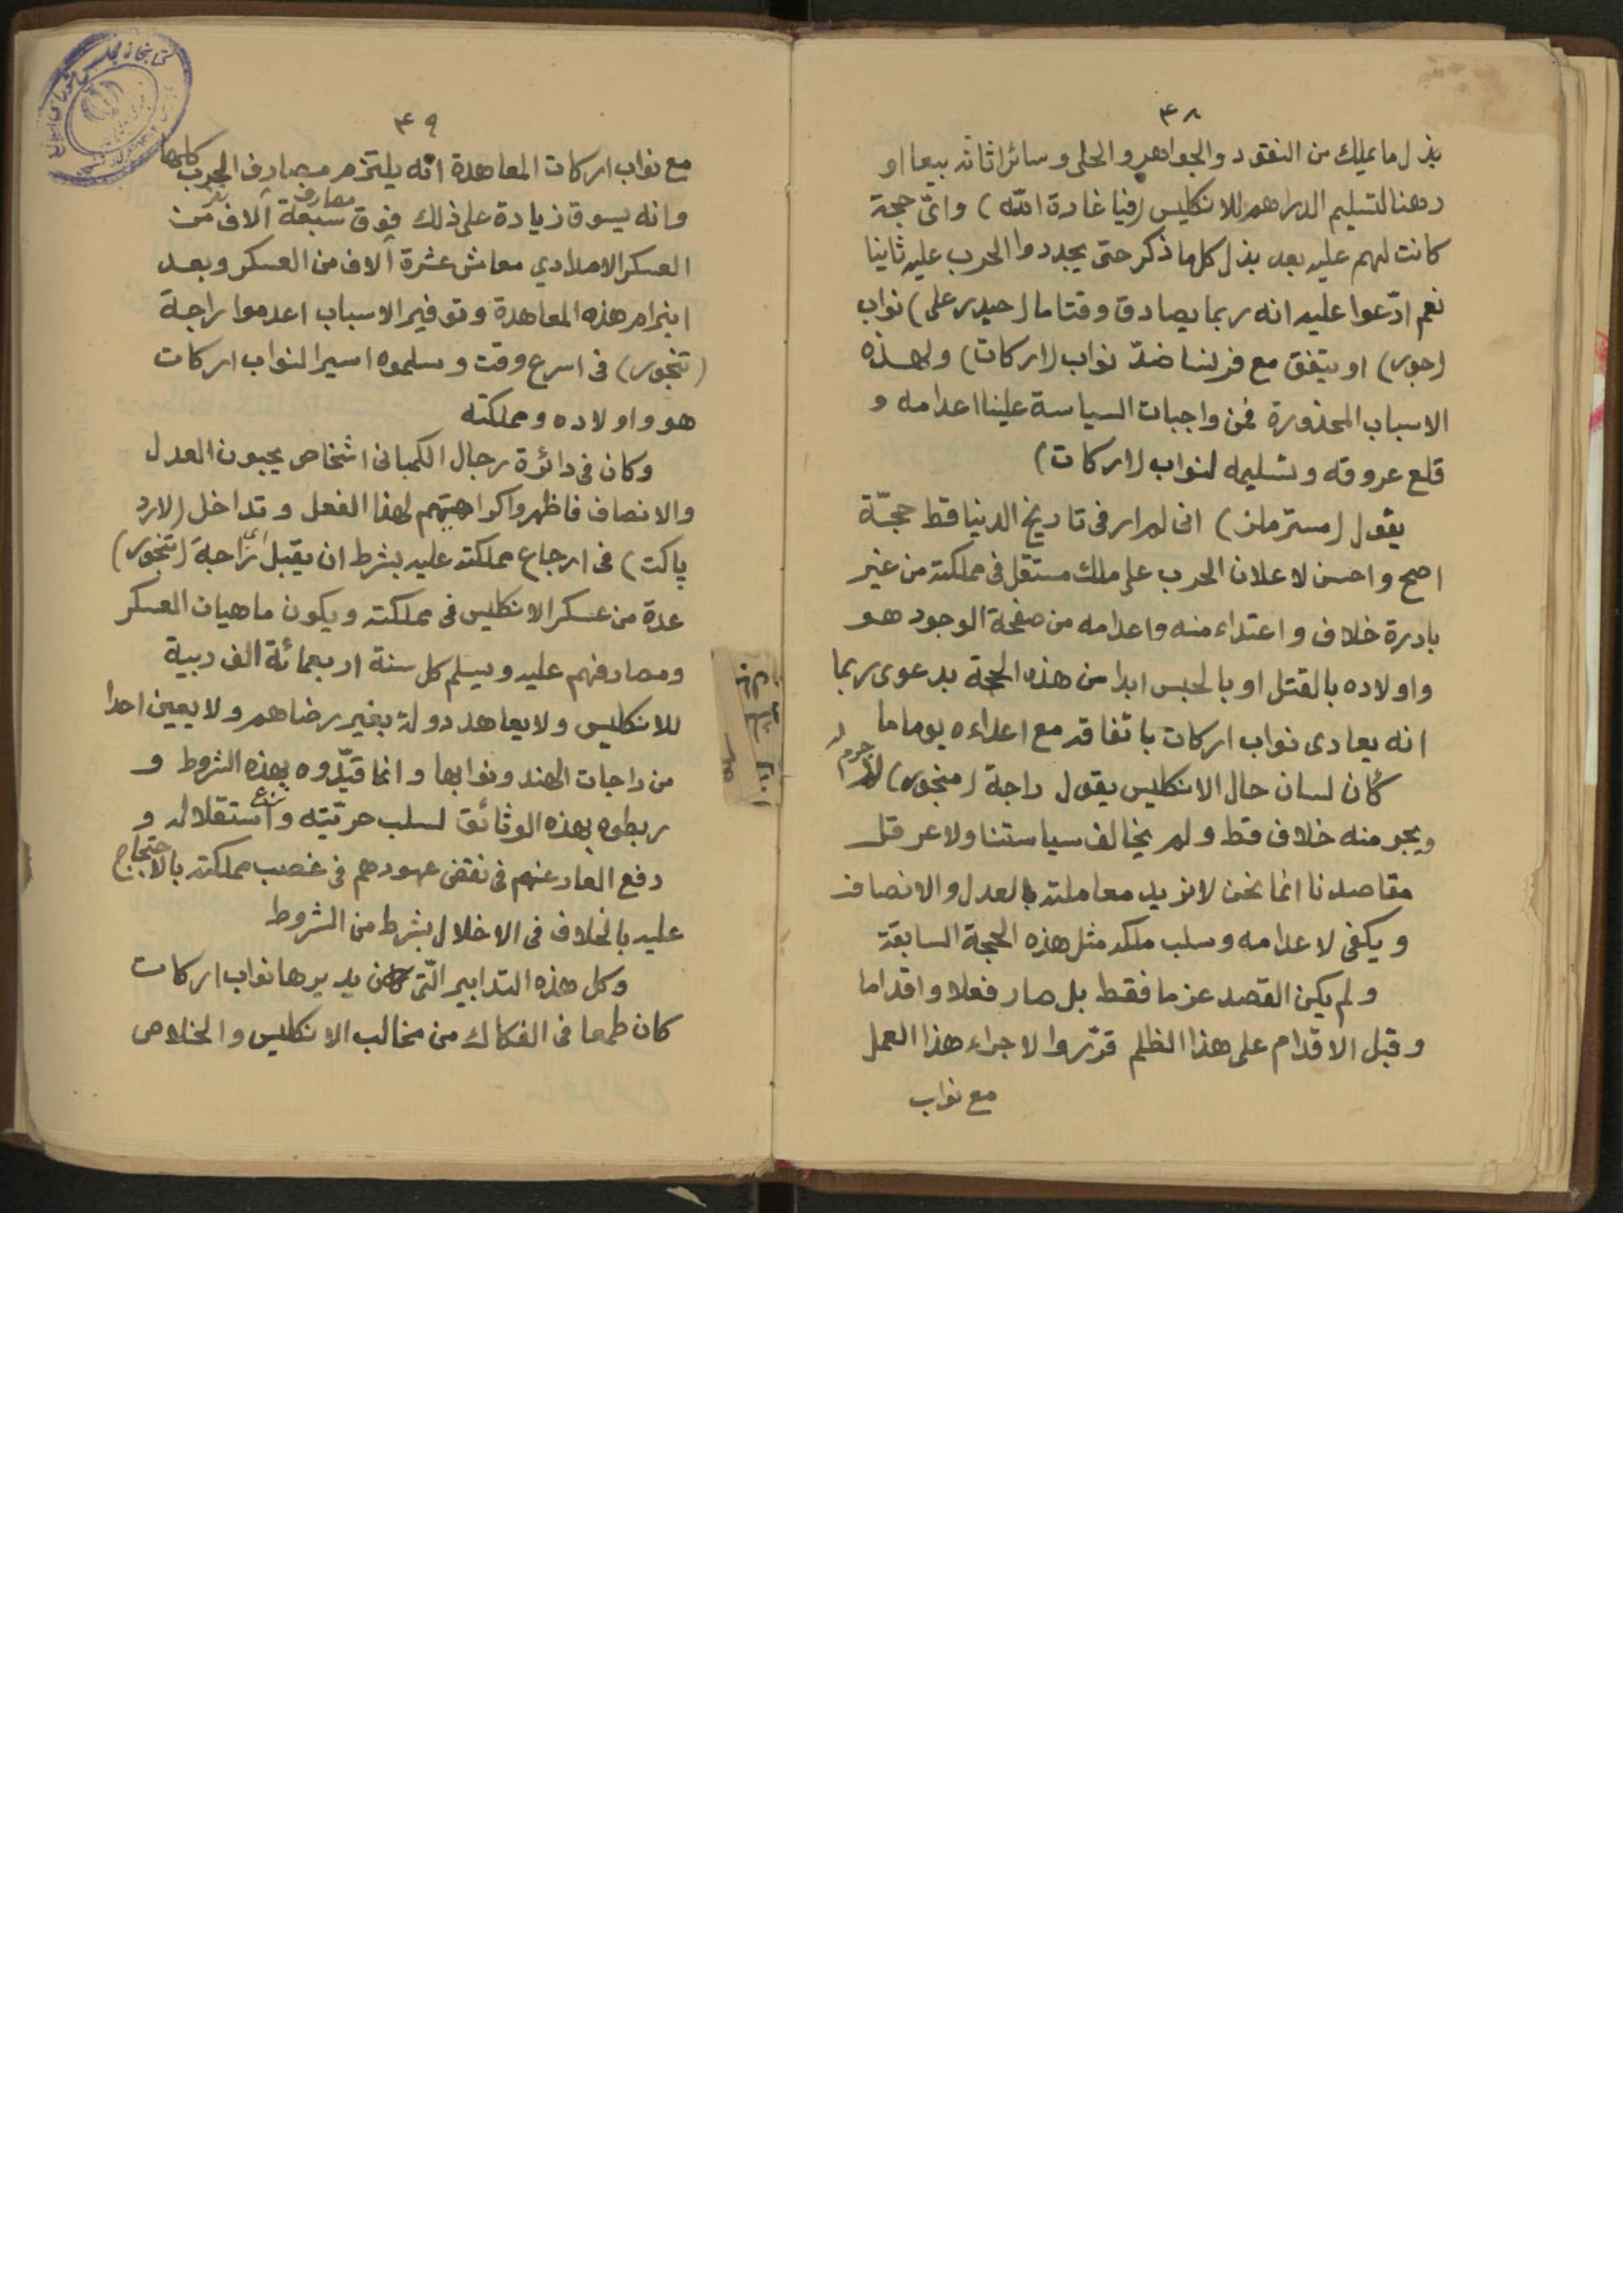 ۴۸
بذل ما يملك من النقود والجواهر والحلى وسائر اثاثه بيعا او
رهنا لتسليم الدراهم للانكليس (فيا غارة الله) واىّ حجة
كانت لهم عليه بعد بذل كلها ذكر حتى يجددوا الحرب عليه ثانيا
نعم ادّعوا عليه انه ربما يصادق وقتا ما (حيدر على) نواب
(جور) او يتفق مع فرنسا ضدّ نواب (اركات) ولهذه
الاسباب المحذورة فمن واجبات السياسة علينا اعدامه و
قلع عروقه وتسليمه لنواب (اركات)
يقول (مستر ملز) انى لم ار فى تاريخ الدنيا قط حجّة
اصح واحسن لاعلان الحرب على ملك مستقل فى مملكته من غير
بادرة خلاف واعتداء منه واعدامه من صفحة الوجود هو
واولاده بالقتل او بالحبس ابدا من هذه الحجة بدعوى ربما
انه يعادى نواب اركات باتفاقه مع اعداءه يوما ما
كأن لسان حال الانكليس يقول راجة (منجور) لا جرم له
ويجر منه خلاف قط ولم يخالف سياستنا ولا عرقل
مقاصدنا انما نحن لا نريد معاملته بالعدل والانصاف
ويكفى لاعدامه وسلب ملكه مثل هذه الحجة السابقة
ولم يكن القصد عزما فقط بل صار فعلا واقداما
وقبل الاقدام على هذا الظلم قرّروا لاجراء هذا العمل
مع نواب
۴۹
مع نواب اركات المعاهدة انه يلتزم مصارف الحرب كلها
وانه يسوق زيادة على ذلك فوق مصارف سبعة آلاف من
العسكر الامدادي معاش عشرة آلاف من العسكر وبعد
انبرام هذه المعاهدة وتوفير الاسباب اعدموا راجة
(تنجور) فى اسرع وقت وسلموه اسيرا لنواب اركات
هو واولاده ومملكته
وكان فى دائرة رجال الكمبانى اشخاص يحبون العدل
والانصاف فاظهروا كراهيتهم لهذا الفعل وتداخل (لارد
پاكت) فى ارجاع مملكته عليه بشرط ان يقبل راجة (تنجور)
عدة من عسكر الانكليس فى مملكته ويكون ماهيات العسكر
ومصارفهم عليه ويسلم كل سنة اربعمائة الف ربية
للانكليس ولا يعاهد دولة بغير رضاهم ولا يعين احدا
من راجات الهند ونوابها وانما قيّدوه بهذه الشروط و
ربطوه بهذه الوثائق لسلب حريّته ونزع استقلاله و
دفع العار عنهم فى نقض عهودهم فى غصب مملكته بالاحتجاج
عليه بالخلاف فى الاخلال بشرط من الشروط
وكل هذه التدابير التى كان يديرها نواب اركات
كان طمعا فى الفكاك من مخالب الانكليس والخلاص